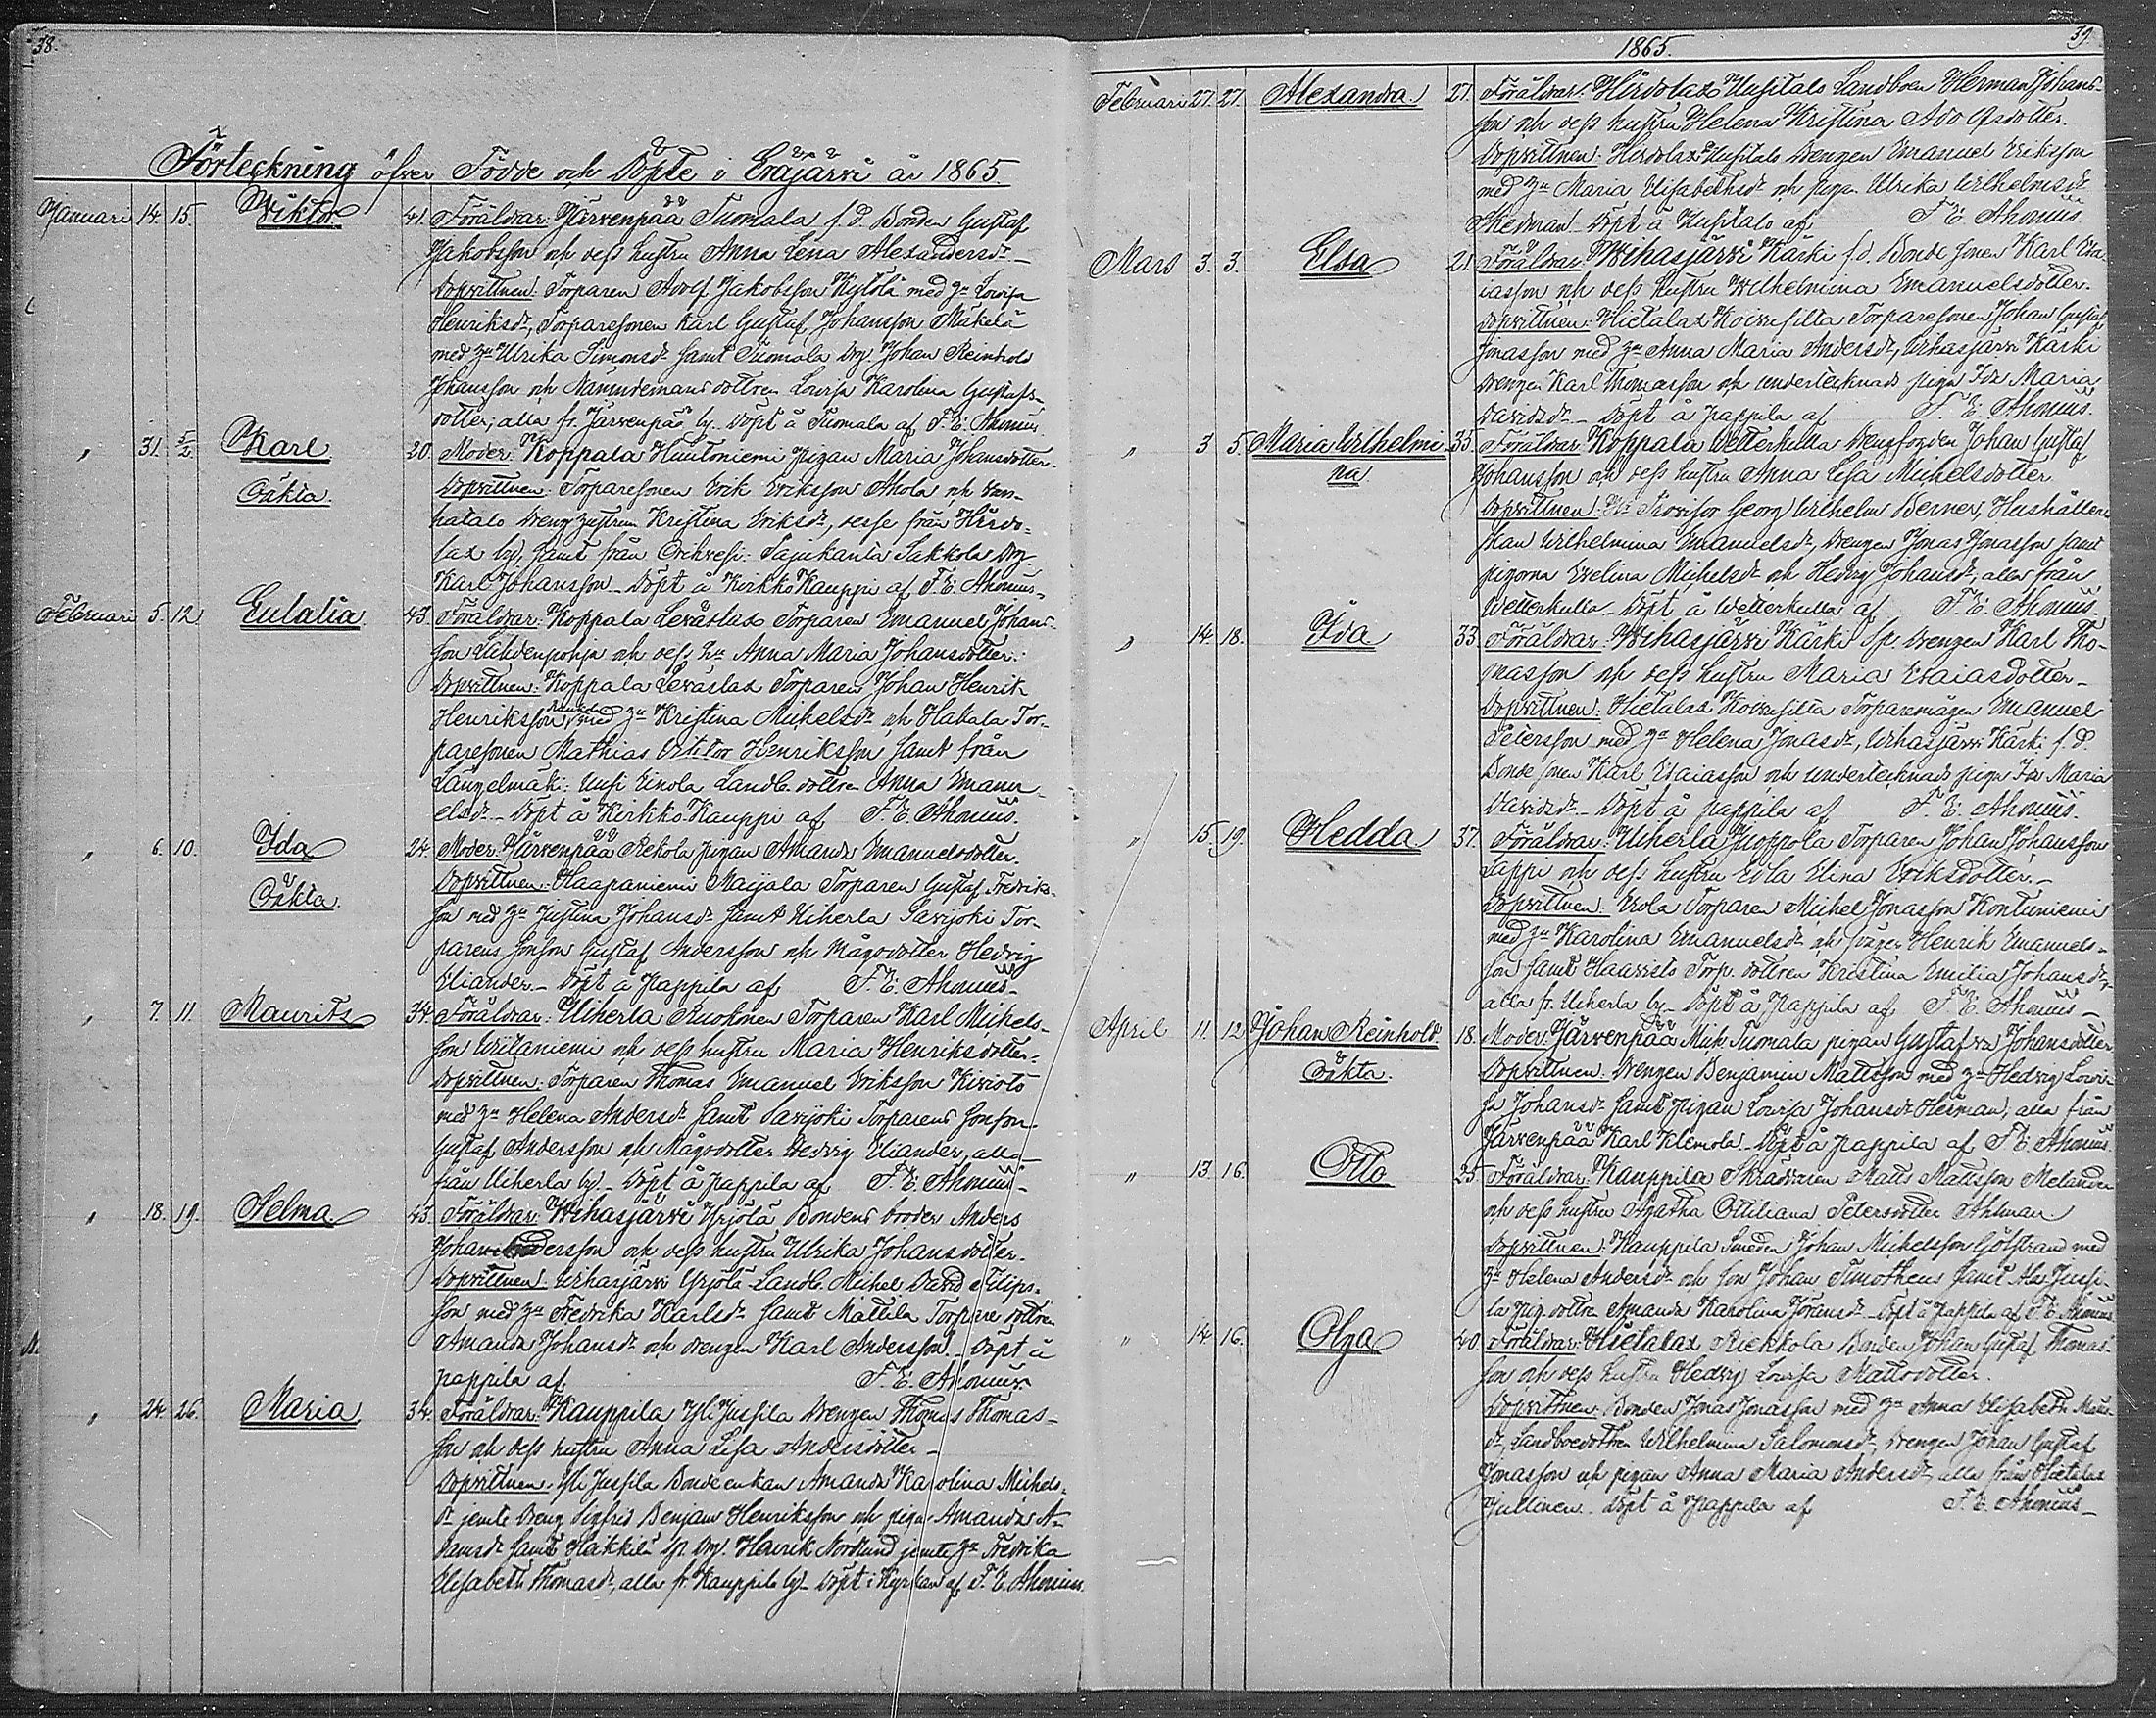 38.
Förteckning öfver Födde och Döpte i Eräjärvi år 1865.
Januari 14. 15. Wiktor 41. Föräldrar: Järvenpää Tuomala f.d. Bonden Gustaf
Jakobsson och dess hustru Anna Lena Alexandersdr
Dopvittnen: Torparen Adolf Jakobsson Kytölä med hu Lovisa
Henriksdr, Torparesonen Karl Gustaf Johansson Mäkelä
med hu Ulrika Simonsdr samt Tuomala Drg. Johan Reinhold
Johansson och Nämndemansdottren Lovisa Karolina Gustafs-
dotter; alla fr. Järvenpää by. Döpt å Tuomala af F. E. Ahonius.
" 31. 5/2 Karl 20. Moder: Koppala Huutoniemi pigan Maria Johansdotter.
Oäkta. Dopvittnen: Torparesonen Erik Eriksson Ahola och
hatalo Drenghustrun Kristina Eriksdr, desse från Hirvo-
lax by, samt från Orihvesi: Sajukanta Sakkola Drg.
Karl Johansson. Döpt å Kirkko Kauppi af F. E. Ahonius.
Februari 5. 12. Eulalia 43. Föräldrar: Koppala Leväslax Torparen Emanuel Johans-
son Lihdenpohja och dess hu Anna Maria Johansdotter.
Dopvittnen: Koppala Leväslax Torparen Johan Henrik
Henriksson med hu Kristina Michelsdr och Hakala Tor-
paresonen Mathias Viktor Henriksson samt från
Längelmäki: Uusi Einola Landb. dottren Anna Emanu-
elsdr. Döpt å Kirkko Kauppi af F. E. Ahonius.
" 6. 10. Ida 24. Moder: Järvenpää Rekola pigan Amanda Emanuelsdotter.
Oäkta. Dopvittnen: Haapaniemi Maijala Torparen Gustaf Fredriks-
son med hu Justina Johansdr samt Uiherla Savijoki Tor-
parens sonson Gustaf Andersson och Mågdotter Hedvig
Eliander. Döpt å Pappila af F. E. Ahonius.
" 7. 11. Maurits 34. Föräldrar: Uiherla Ruokonen Torparen Karl Michels-
son Witaniemi och dess hustru Maria Henriksdotter.
Dopvittnen: Torparen Thomas Emanuel Eriksson Kivistö
med hu Helena Andersdr samt Savijoki Torparens sonson
Gustaf Andersson och Mågdotter Hedvig Eliander, alla
från Uiherla by. Döpt å Pappila af F. E. Ahonius.
" 18. 19. Selma 43. Föräldrar: Wihasjärvi Yrjölä Bondens broder Anders
Johan Andersson och dess hustru Ulrika Johansdotter.
Dopvittnen: Wihasjärvi Yrjölä Landb. Michel David Filips-
son med hu Fredrika Karlsdr samt Mattila Torpare dottren
Amanda Johansdr och drengen Karl Andersson. Döpt å
pappila af F. E. Ahonius.
" 24. 26. Maria 34. Föräldrar: Kauppila Yli Jussila Drengen Thomas Thomas-
son och dess hustru Anna Lisa Andersdotter
Dopvittnen: Yli Jussila Bondeenkan Amanda Karolina Michels-
dr jemte Dreng Sigfrid Benjam Henriksson och pigan Amanda A-
damsdr samt Häkkilä Sp. Drg. Henrik Nordlund jemte hu Fredrika
Elisabeth Thomasdr, alla fr. Kauppila by. Döpt i Kyrkan af F. E. Ahonius.
1865. 39.
Februari 27. 27. Alexandra 27. Föräldrar: Hirvolax Uusitalo Landboen Herman Johans-
son och dess hustru Helena Kristina Adolfsdotter.
Dopvittnen: Hirvolax Uusitalo Drengen Emanuel Eriksson
med hu Maria Elisabethsdr och pigan Ulrika Wilhelmsdr
Skedman. Döpt å Uusitalo af F. E. Ahonius
Mars 3. 3. Elsa 21. Föräldrar: Wihasjärvi Kärki f.d. Bonde sonen Karl Esa-
iasson och dess hustru Wilhelmina Emanuelsdotter.
Dopvittnen: Hietalax Koivusilta Torparesonen Johan Gustaf
Jonasson med hu Anna Maria Andersdr, Wihasjärvi Kärki
drengen Karl Thomasson och undertecknads piga Ida Maria
Davidsdr. Döpt å pappila af F. E. Ahonius.
" 3 5. Maria Wilhelmi- 35. Föräldrar: Koppala Wetterkulla Drengfogden Johan Gustaf
na Johansson och dess hustru Anna Lisa Michelsdotter
Dopvittnen: Hr Provisor Georg Wilhelm Berner, Hushållers-
kan Wilhelmina Emanuelsdr, Drengen Jonas Jonasson samt
pigorna Evelina Michelsdr och Hedvig Johansdr, alla från
Wetterkulla. Döpt å Wetterkulla af F. E. Ahonius.
" 14. 18. Ida 33. Föräldrar: Wihasjärvi Kärki Sp. Drengen Karl Tho-
masson och dess hustru Maria Esaiasdotter
Dopvittnen: Hietalax Koivusilta Torparemågen Emanuel
Petersson med hu Helena Jonasdr, Wihasjärvi Kärki f.d.
Bonde sonen Karl Esaiasson och undertecknads piga Ida Maria
Davidsdr. Döpt å pappila af F. E. Ahonius.
" 15. 19. Hedda 37. Föräldrar: Uiherla Pioppola Torparen Johan Johansson
Lappi och dess hustru Eva Elina Eriksdotter.
Dopvittnen: Erola Torparen Michel Jonasson Kontuniemi
med hu Karolina Emanuelsdr och svåger Henrik Emanuels-
son samt Haavisto Torp. dottren Kristina Emilia Johansdr,
alla fr. Uiherla by. Döpt å Pappila af F. E. Ahonius
April 11. 12. Johan Reinhold. 18. Moder: Järvenpää Tuomala pigan Gustafva Johansdotter
Oäkta. Dopvittnen: Drengen Benjamin Mattsson med hu Hedvig Lovi-
sa Johansdr samt Pigan Lovisa Johansdr Hesman, alla från
Järvenpää Karl Klemola. Döpt å pappila af F. E. Ahonius.
" 13. 16. Otto 25. Föräldrar: Kauppila Skräddaren Matts Mattsson Melander
och dess hustru Agatha Ottiliana Petersdotter Ahlman.
Dopvittnen: Kauppila Smeden Johan Michelsson Sjöstrand med
hu Helena Andersdr och son Johan Timotheus samt Ala Jussi-
la pig. dottre Amanda Karolina Göransdr. Döpt å Pappila af F. E. Ahonius.
" 14. 16. Olga 40. Föräldrar: Hietalax Riekkola Bonden Johan Gustaf Thomas-
son och dess hustru Hedvig Lovisa Mattsdotter.
Dopvittnen: Bonden Jonas Jonasson med hu Anna Elisabeth Matts-
dr, Landboedottren Wilhelmina Salomonsdr, Drengen Johan Gustaf
Jonasson och pigan Anna Maria Andersdr alla från Hietalax
Jullinen. Döpt å Pappila af F. E. Ahonius